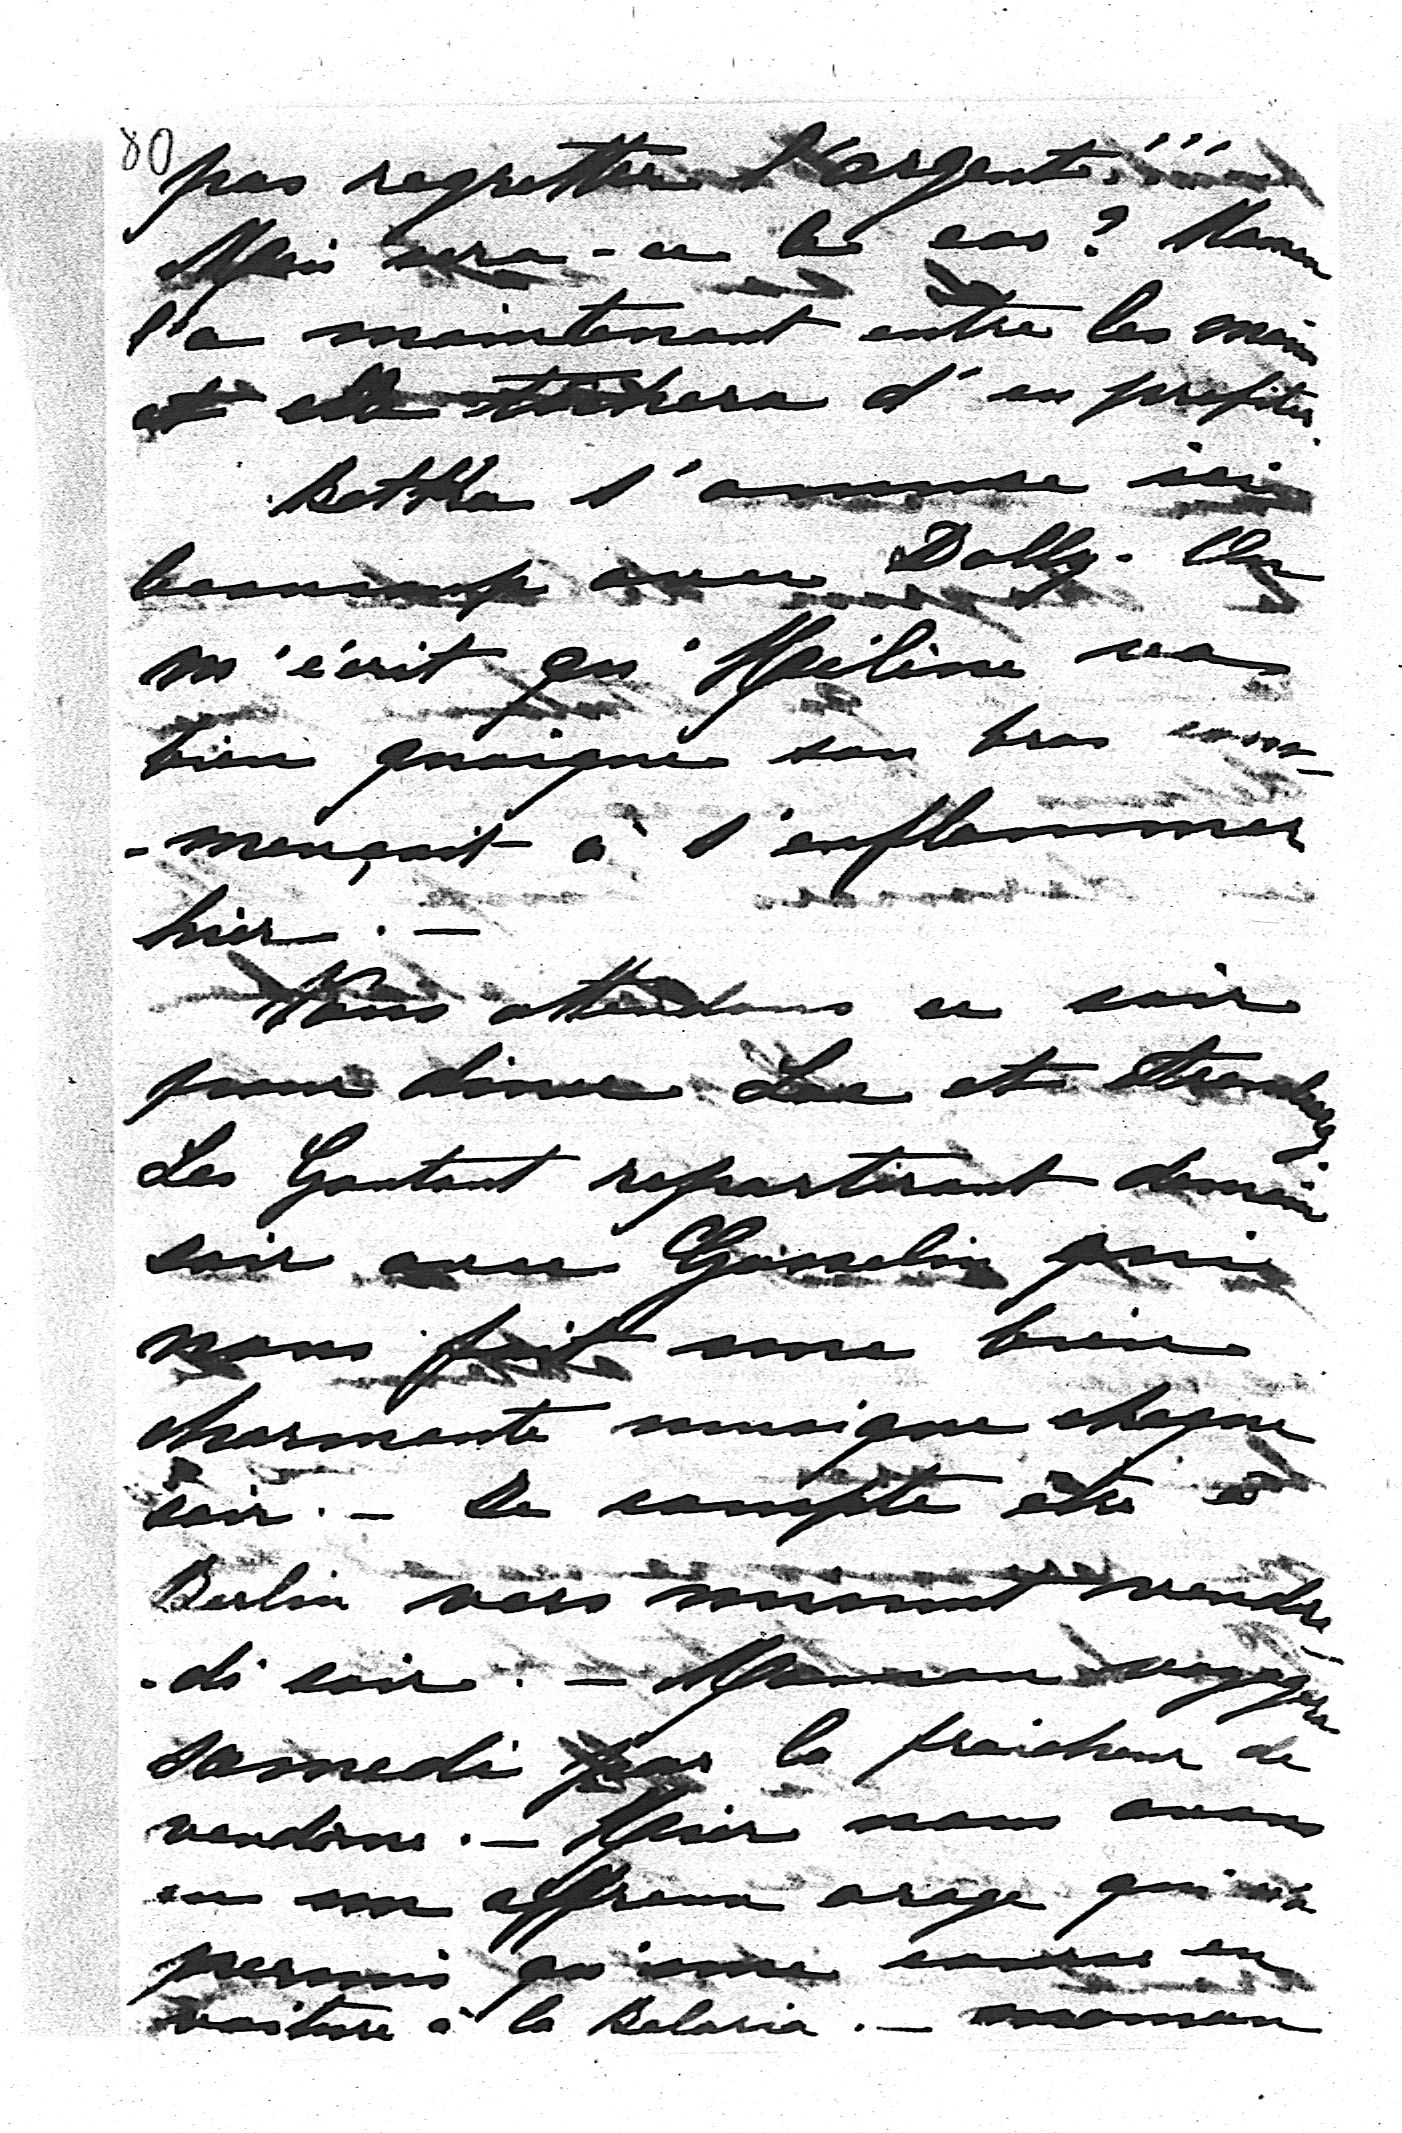 80
pas regretter l'argent!!!
Mais sera-ce le cas? Maman
l'a maintenant entre les mains
et elle tâchera d'en profiter.
Bettka s'amuse ici
beaucoup avec Dolly. On
m'écrit qu'Hélène va
bien quoique son bras com-
-mençait à s'enflammer
hier. —
Nous attendons ce soir
pour diner Lee et
Les Gontaut repartiront demain
soir avec Gosselin qui
nous fait une bien
charmante musique chaque
soir. — Je compte être à
Berlin vers minuit vendre-
-di soir. — Maman voyagera
samedi par la fraicheur de
vendôme. — Hier nous avons
eu un affreux orage qui n'a
permis qu'une course en
voiture à la Belaria. — maman